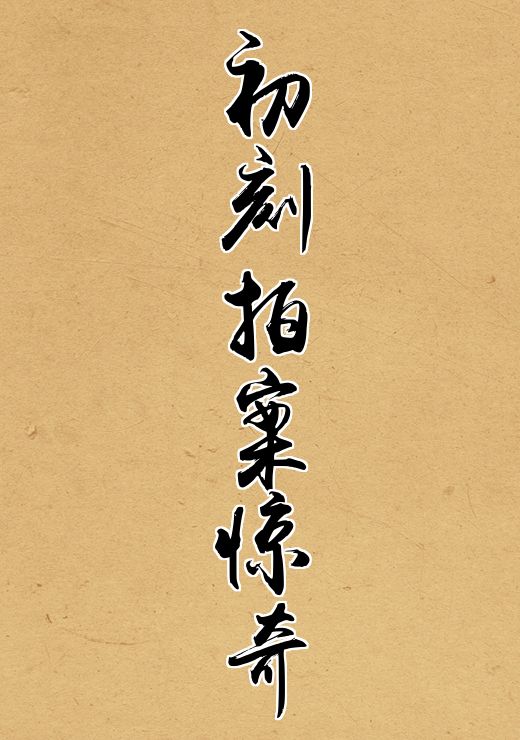 初刻拍案惊奇